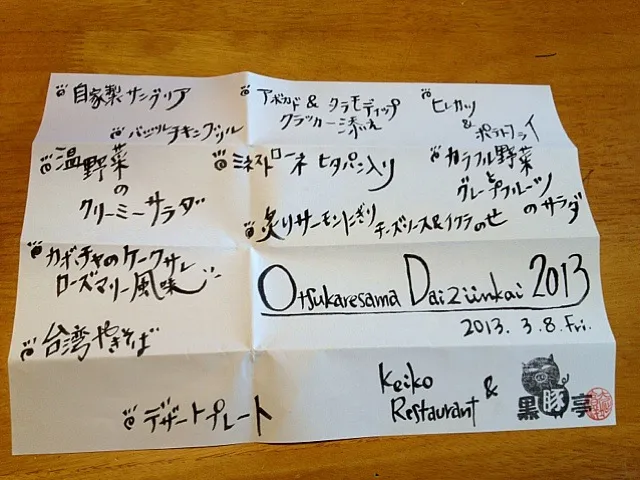 自家製サングリア
アボカド & タラモディップ
クラッカー添え
ヒレカツ
&
ポテトフライ
バジルチキングリル
温野菜
の
クリーミーサラダ
ミネストローネ ヒタパン入り
カラフル野菜
と
グレープフルーツ
のサラダ
炙りサーモンにぎり
チーズソース&イクラのせ
カボチャのケークサレ
ローズマリー風味
Otsukaresama Daizünkai 2013
2013. 3. 8. Fri.
台湾やきそば
デザートプレート
Keiko
Restaurant
&
黒豚亭